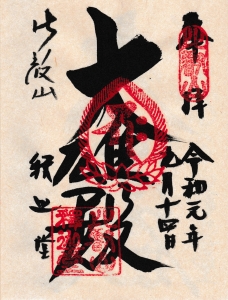 奉拝
令和元年
九月十四日
大雄殿
比叡山
釈迦堂